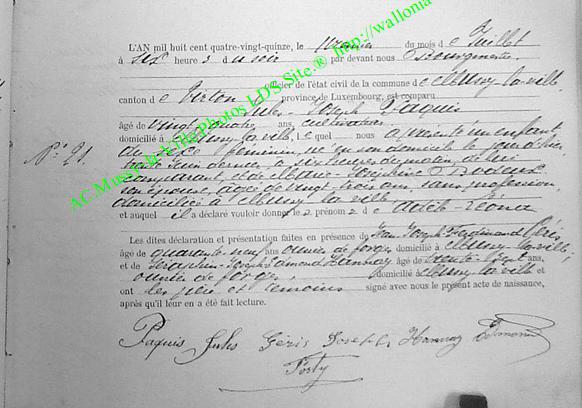 L'AN mil huit cent quatre-vingt-quinze, le premier du mois de Juillet
à six heures du soir par devant nous Bourgmestre
officier de l'état civil de la commune de Mussy-la-ville
canton de Virton province de Luxembourg, est comparu
Jules Joseph Paquis
âgé de vingt quatre ans, cultivateur
domicilié à Mussy la ville, lequel nous a présenté un enfant
du sexe féminin, né en son domicile le jour d'hier
trente juin dernier à six heures du matin, de lui
comparant et de Marie Joséphine
son épouse, âgée de vingt trois ans, sans profession
domiciliée à Mussy la ville
et auquel il a déclaré vouloir donner les prénoms de Adèle Léona
Les dites déclaration et présentation faites en présence de Jean Joseph Ferdinand Géris
âgé de quarante neuf ans ouvrier de forges domicilié à Mussy-la-ville,
et de Séraphin Joseph Edmond Hannay âgé de trente ans,
ouvrier de forges domicilié à Mussy la ville et
ont les père et témoins signé avec nous le présent acte de naissance,
après qu'il leur en a été fait lecture.
N° 21.
Paquis Jules Géris Joseph Hannay Edmond
Forty
AC Mussy-la-Ville Photos LDS Site ® http://wallonia